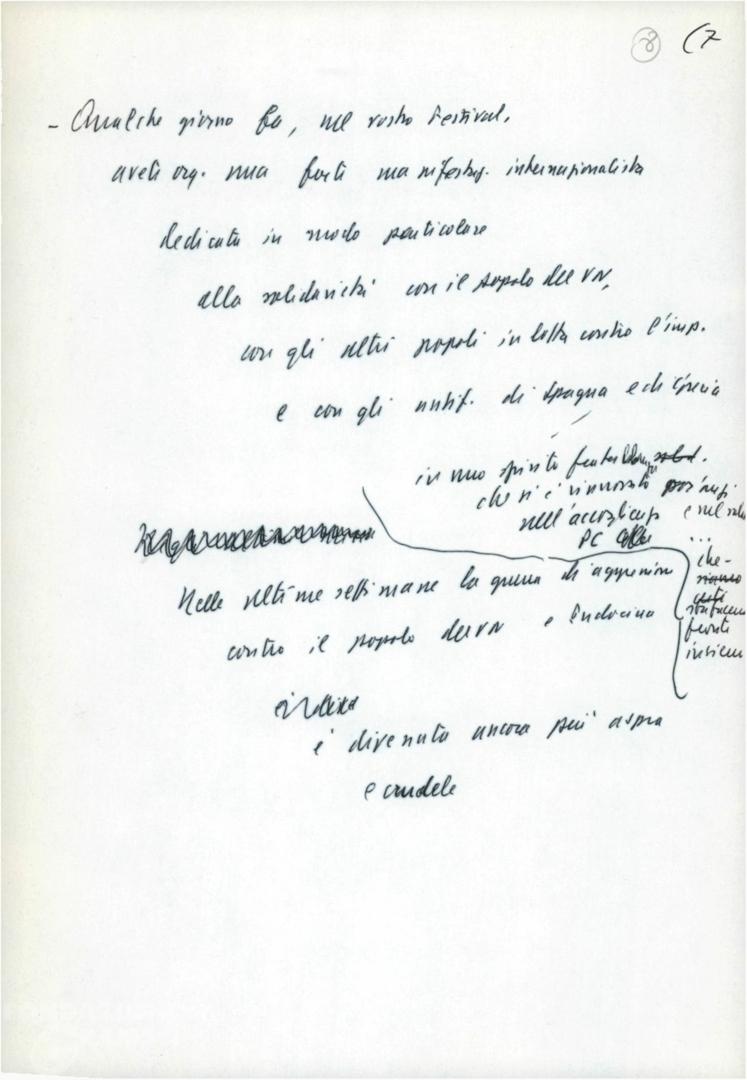 8 (7
- Qualche giorno fa, nel vostro Festival,
avete org. una forte manifestaz. internazionalista
dedicata in modo particolare
alla solidarietà con il popolo del VN,
con gli altri popoli in lotta contro l'imp.
e con gli antif. di Spagna e di Grecia
in uno spirito
che si è rinnovato
nell'
PC
che
insieme
Nelle ultime settimane la guerra di aggressione
contro il popolo del VN e Indocina
è divenuta ancora più aspra
e crudele